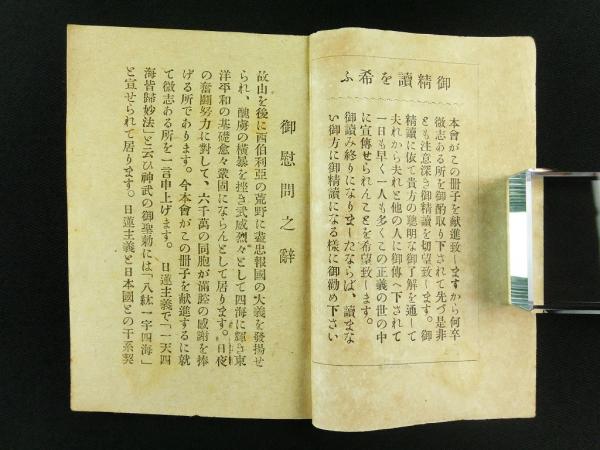 御精讀を希ふ
本會がこの冊子を献進致しますから何卒
微志ある所を御酌取り下されて先づ是非
とも注意深き御精讀を切望致します。御
精讀に依て貴方の聰明な御了解を通して
夫れから夫れと他の人に御傳へ下されて
一日も早く一人も多くこの正義の世の中
に宣傳せられんことを希望致します。
御讀み終りになりましたならば、讀まな
い御方に御精讀になる樣に御勸め下さい
御慰問之辭
故山を後に西伯利亞の荒野に盡忠報國の大義を發揚せ
られ、醜虜の橫暴を挫き武威烈々として四海に輝き東
洋平和の基礎愈々鞏固にならんとして居ります。日夜
の奮鬪努力に對して、六千萬の同胞が滿腔の感謝を捧
げる所であります。今本會がこの冊子を献進するに就
て微志ある所を一言申上げます。日蓮主義で「一天四
海皆歸妙法」と云ひ神武の御聖勅には「八紘一宇四海」
と宣せられて居ります。日蓮主義と日本國との干系契